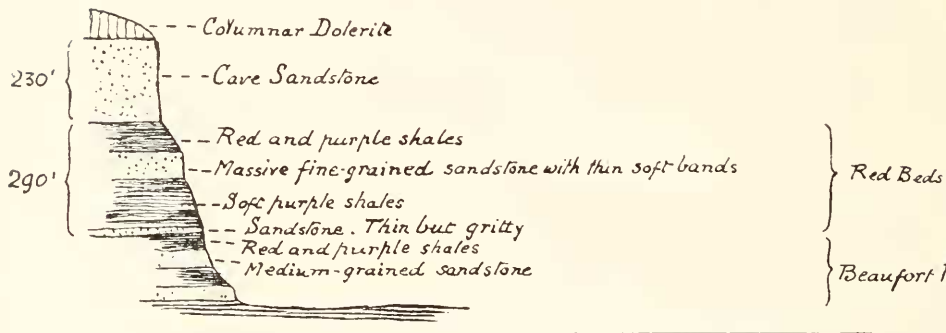 Columnar Dolerite
230'
Cave Sandstone
Red and purple shales
Massive fine-grained sandstone with thin soft bands
290'
Red Beds
Soft purple shales
Sandstone. Thin but gritty
Red and purple shales
Medium-grained sandstone
Beaufort